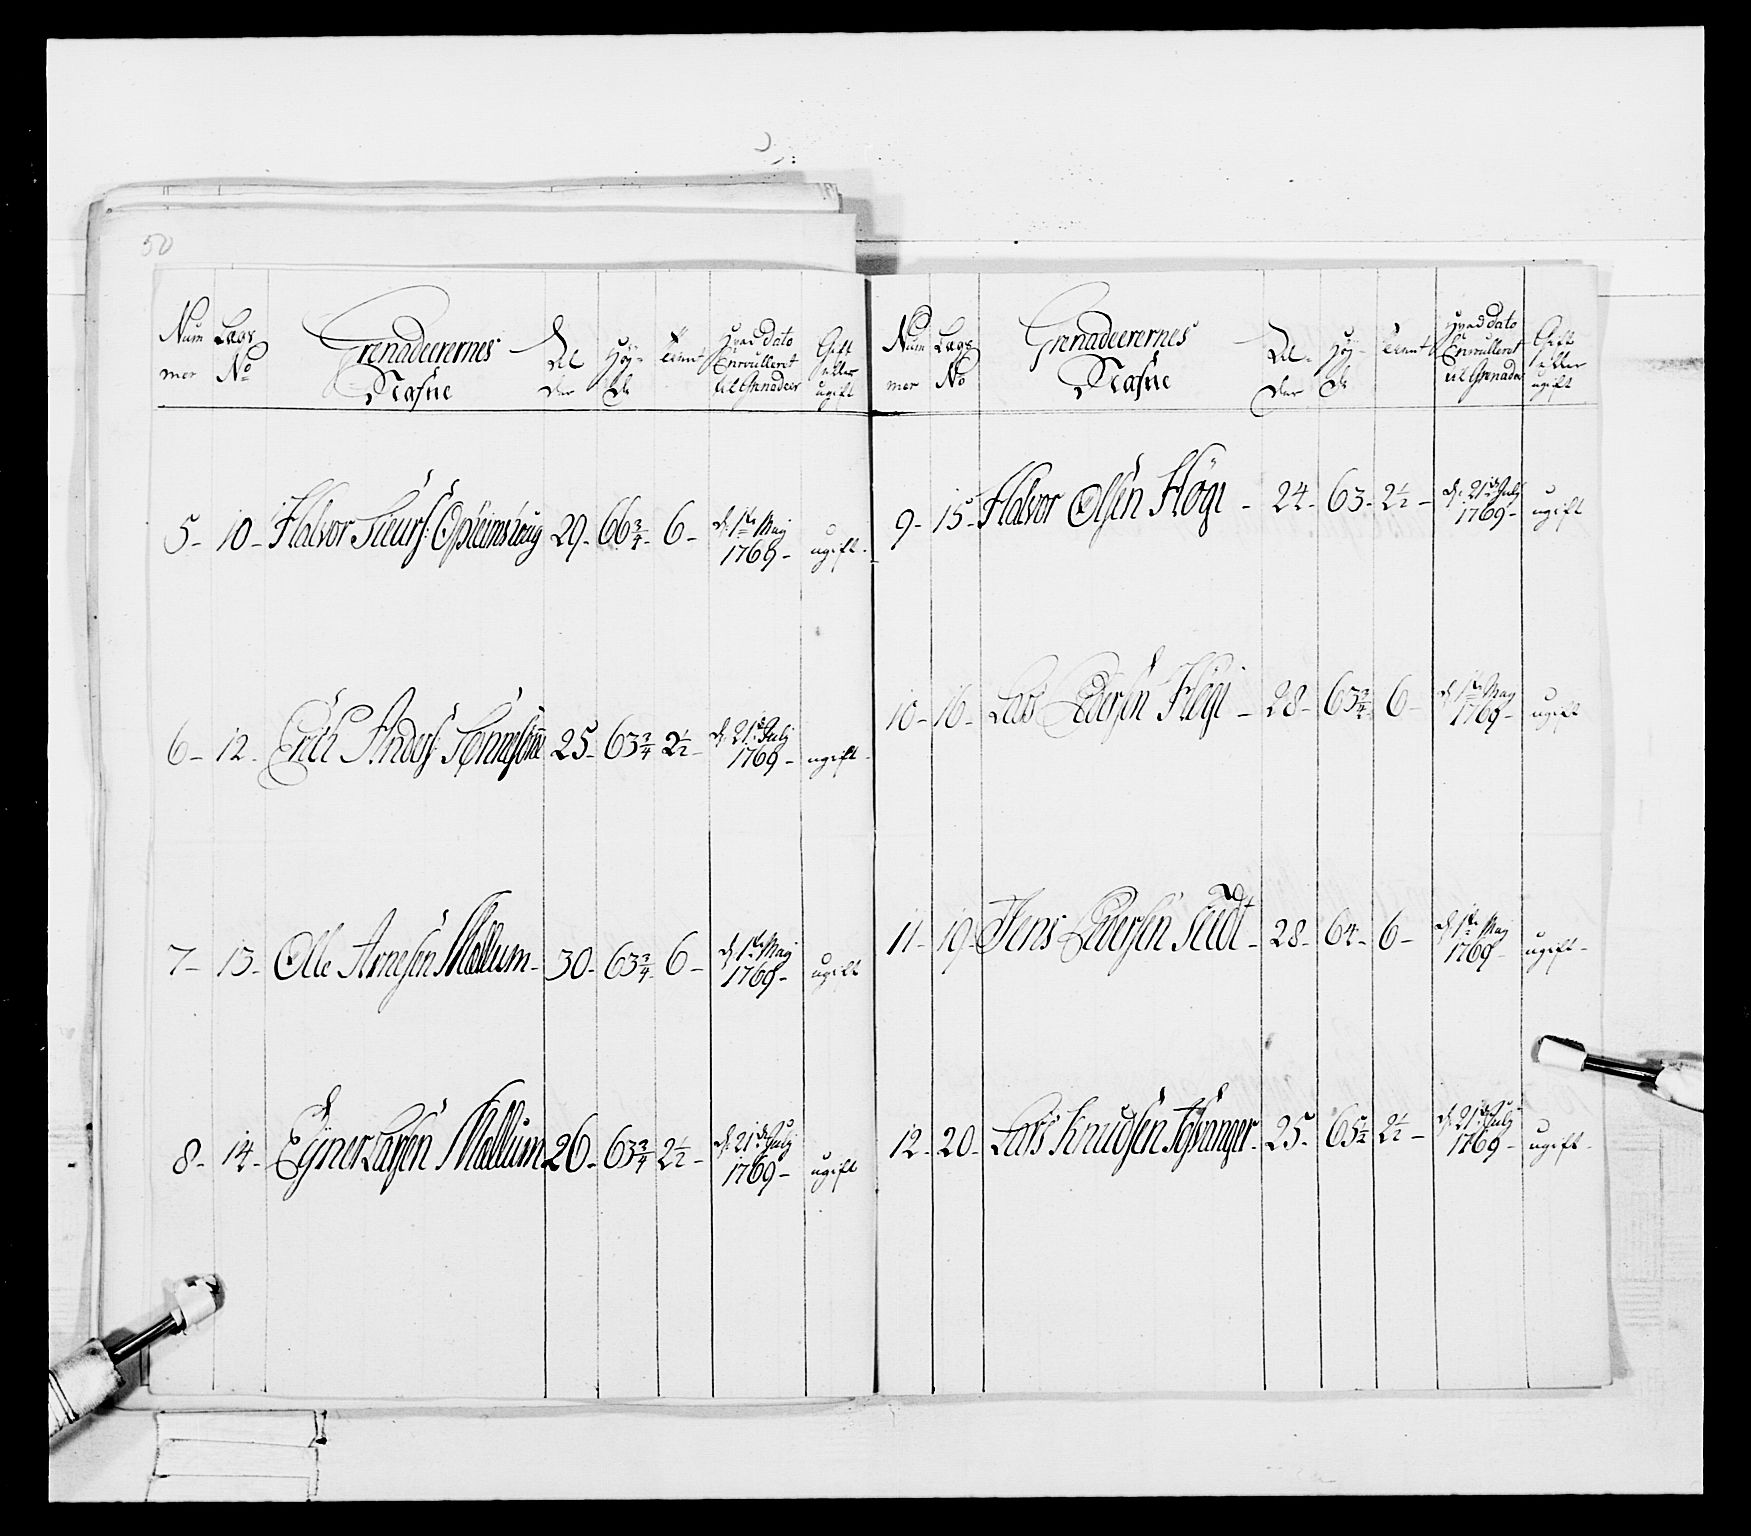 50
Num mer | Lægs No | Grenadeerernes Nafne | Al der | Höy de | Tient | Hvad dato Enroulleret til Grenadeer | Gift eller ugift
5 - 10 - Halvor Siurs: 29 - 66 3/4 - 6 - d: 1te Maj 1769 - ugift -
6 - 12 - Erich Anders: 25 - 63 3/4 - 2 1/2 - d: 21de Julj 1769 - ugift -
7 - 13 - Olle Arnesen Mellum - 30 - 63 3/4 - 6 - d: 1te Maj 1769 - ugift
8 - 14 - Ejner Larsen Mellum 26 - 63 3/4 - 2 1/2 - d: 21de Julj 1769 - ugift
Num mer | Lægs No | Grenadeerernes Nafne | Al der | Höy de | Tient | Hvad dato Enroulleret til Grenadeer | Gift eller ugift
9 - 15 - Halvor Olsen Högi - 24 - 63 - 2 1/2 - d: 21de Julj 1769 - ugift
10 - 16 - Lars Pedersen Högi - 28 - 63 3/4 - 6 - d: 1te Maj 1769 - ugift
11 - 19 - Jens Pedersen - 28 - 64 - 6 - d: 1te Maj 1769 - ugift -
12 - 20 - Lars Knudsen - 25 - 65 1/2 - 2 1/2 - d: 21de Julj 1769 - ugift -